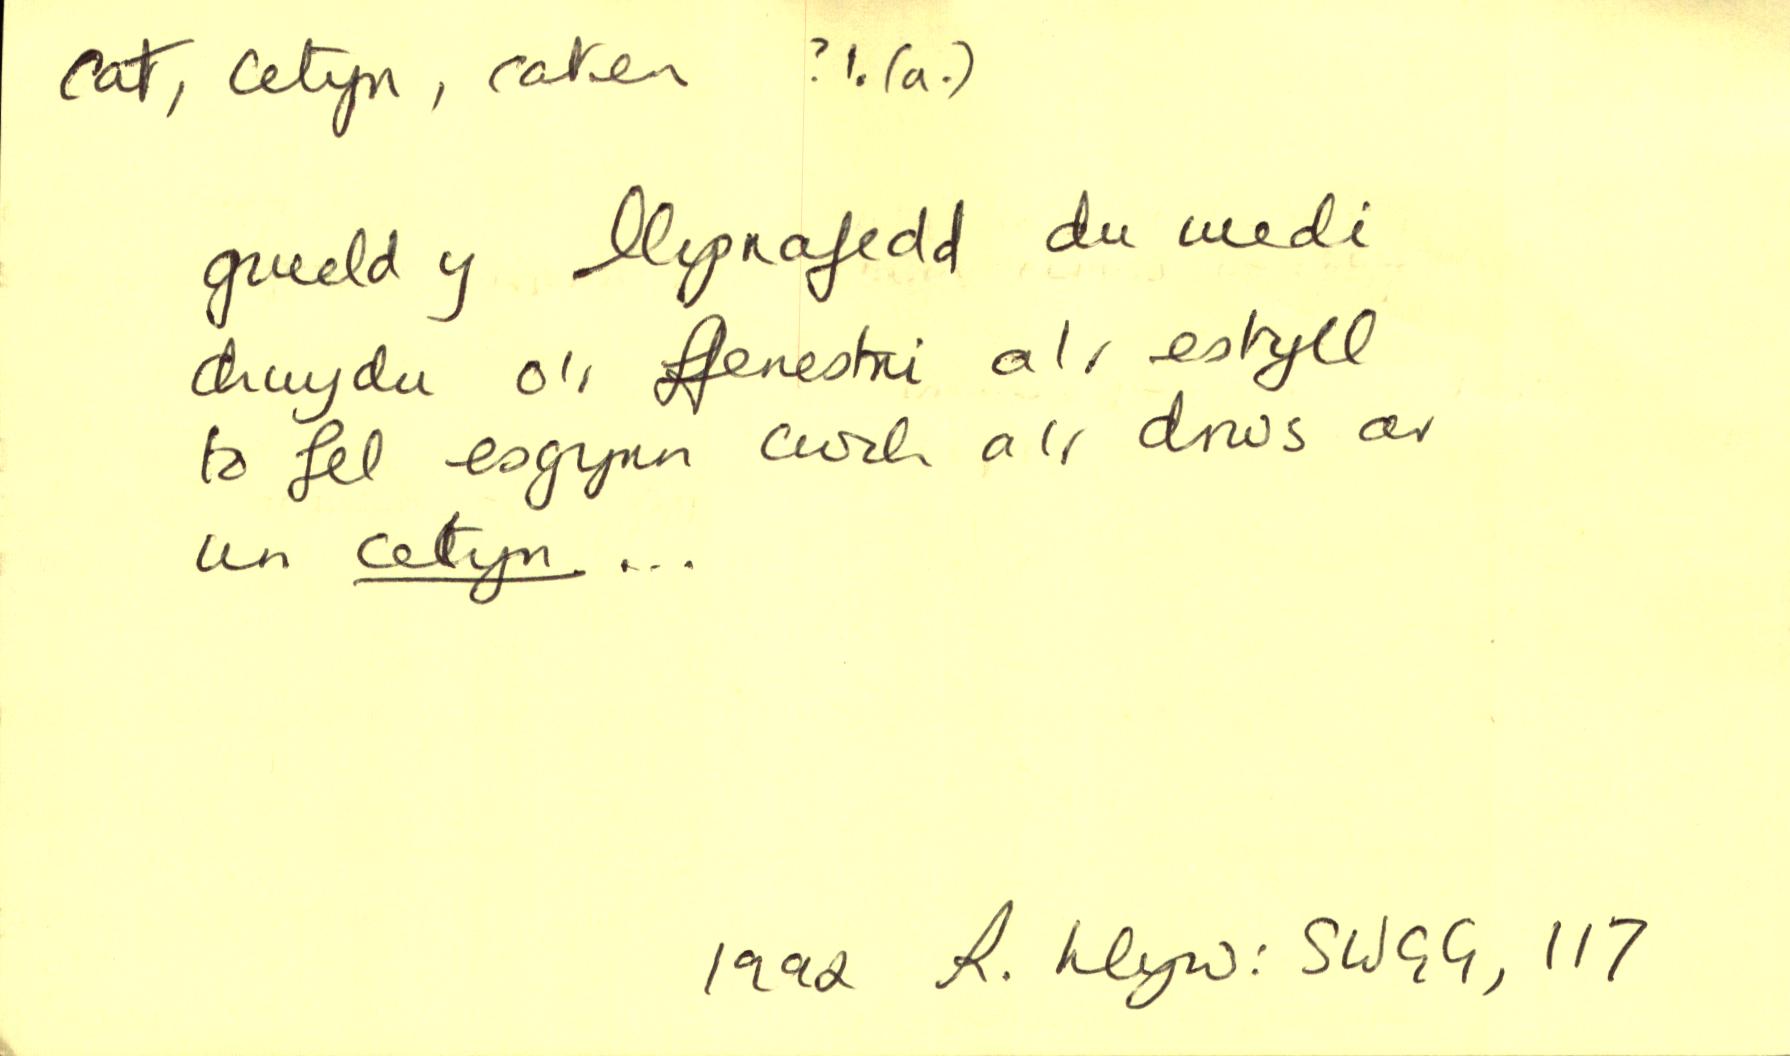 cat, cetyn, caten ?1.(a.)
gweld y llysnafedd du wedi
chwydu o'r ffenestri a'r estyll
to fel esgyrn cwch a'r drws ar
un cetyn ...
1992 R. Llyw: SWGG, 117